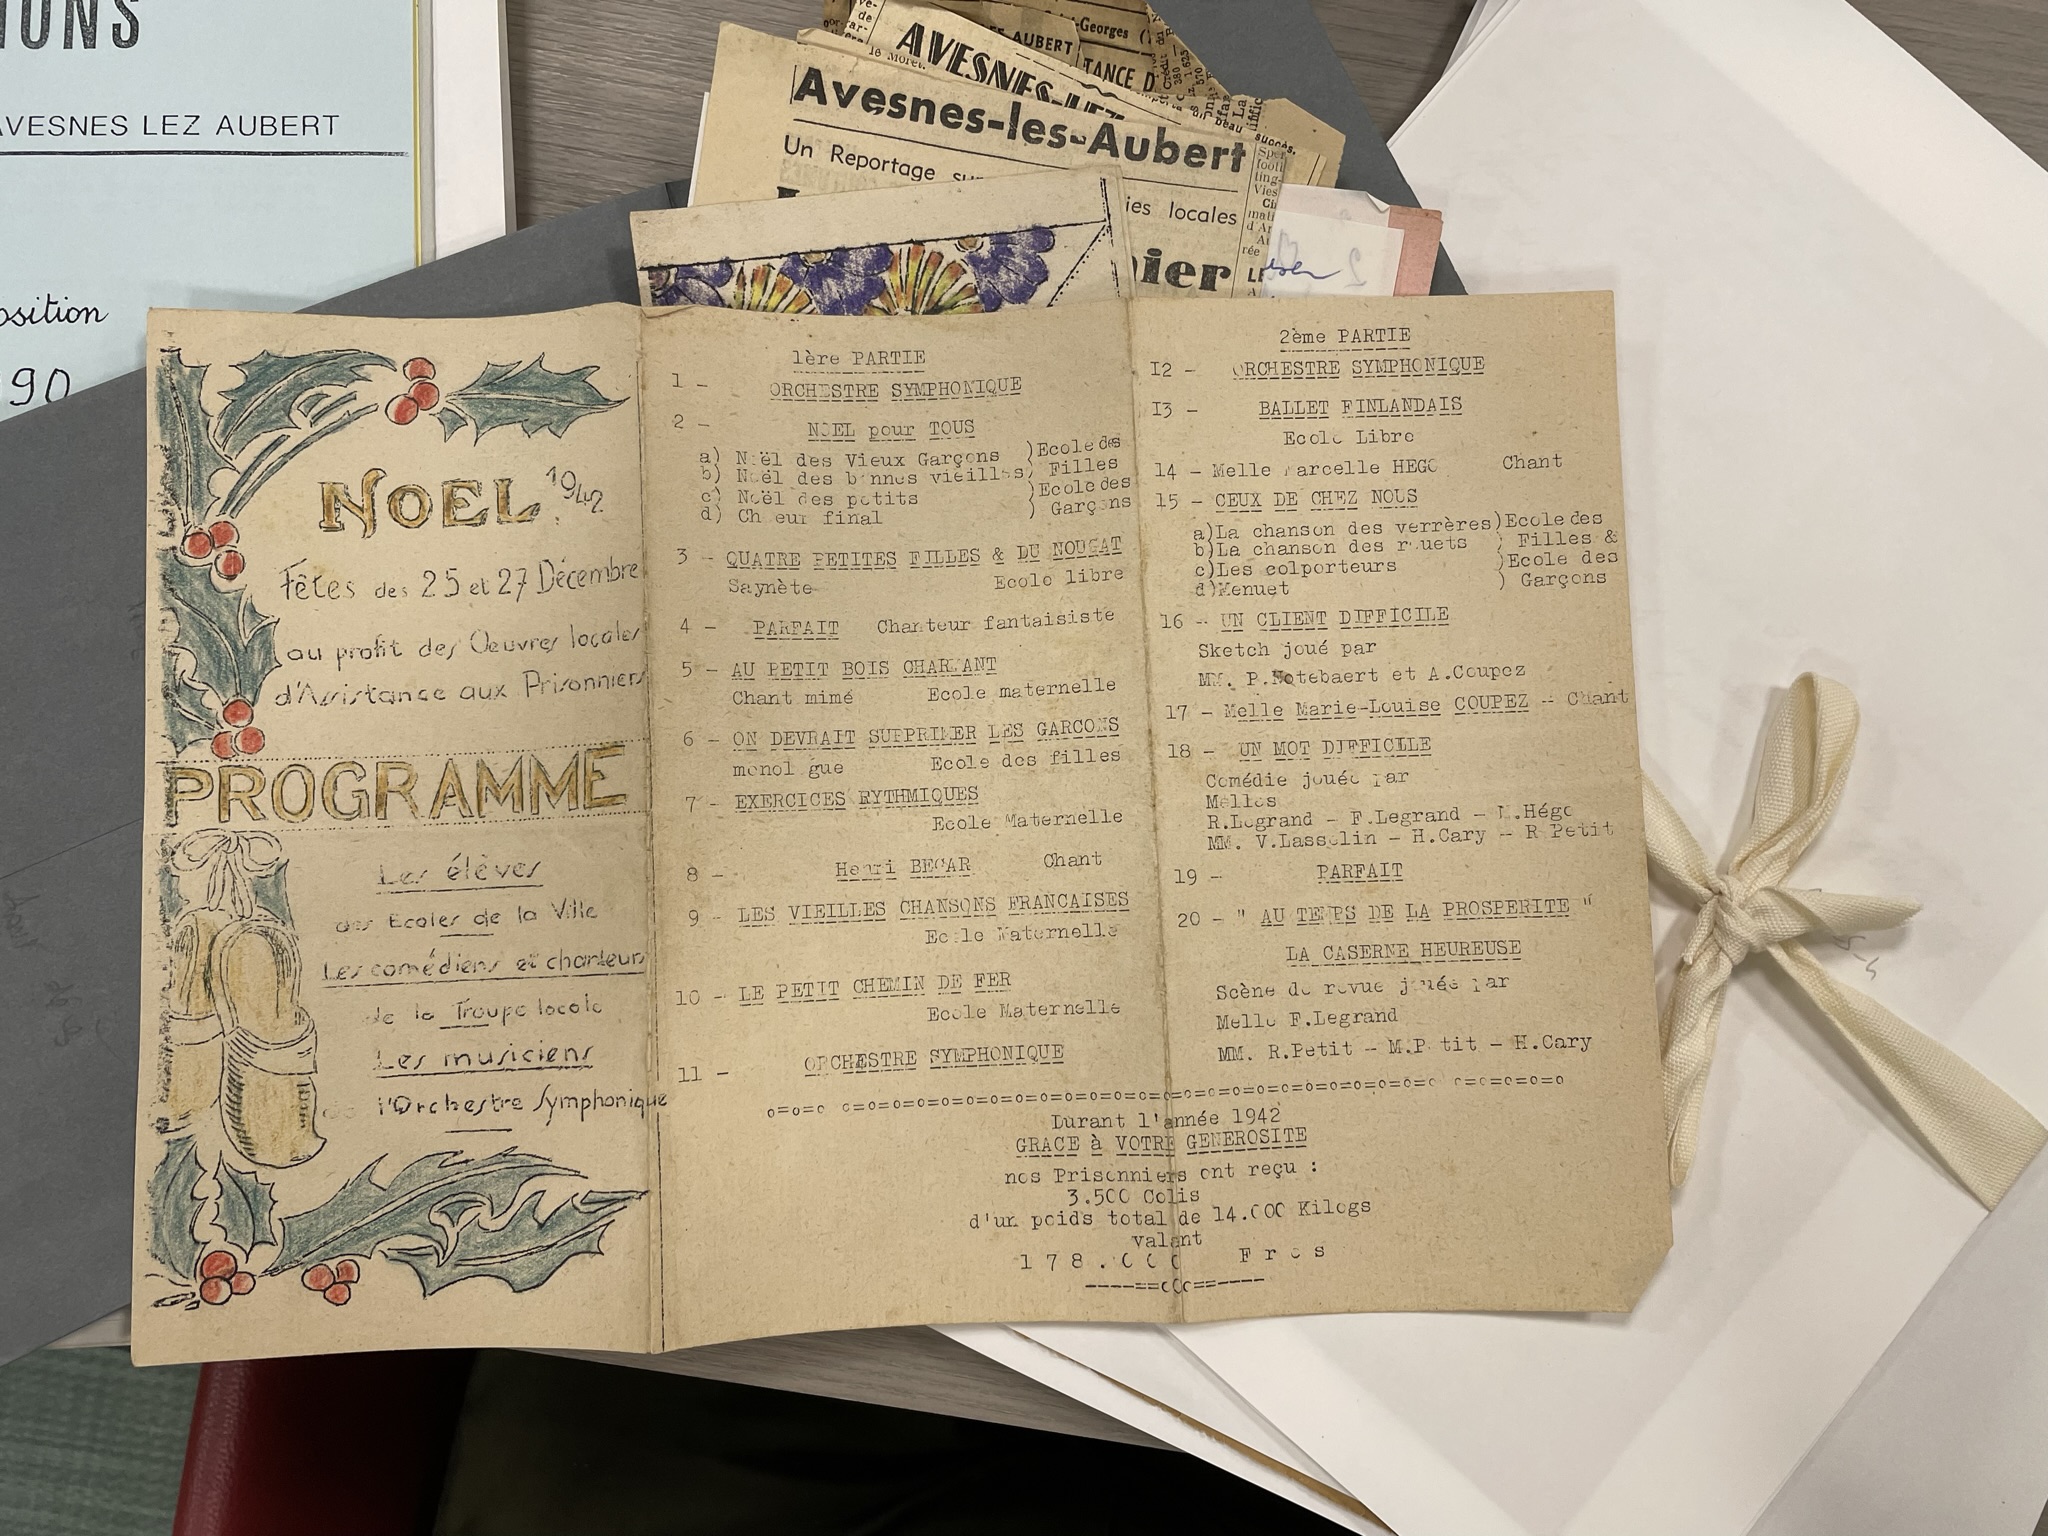 IONS
AVESNES LEZ AUBERT
position
90
AVESNES-LEZ
Avesnes-les-Aubert
Un Reportage su
ies locales
NOEL 1942
Fêtes des 25 et 27 Décembre
au profit des Oeuvres locales
d'Assistance aux Prisonniers
PROGRAMME
Les élèves
des Ecoles de la Ville
Les comédiens et chanteurs
de la Troupe locale
Les musiciens
de l'Orchestre Symphonique
1ère PARTIE
1 - ORCHESTRE SYMPHONIQUE
2 - NOEL pour TOUS
a) Noël des Vieux Garçons )Ecole des
b) Noël des bonnes vieilles) Filles
c) Noël des petits )Ecole des
d) Choeur final ) Garçons
3 - QUATRE PETITES FILLES & DU NOUGAT
Saynète Ecole libre
4 - PARFAIT Chanteur fantaisiste
5 - AU PETIT BOIS CHARMANT
Chant mimé Ecole maternelle
6 - ON DEVRAIT SUPPRIMER LES GARCONS
monologue Ecole des filles
7 - EXERCICES RYTHMIQUES
Ecole Maternelle
8 - Henri BECAR Chant
9 - LES VIEILLES CHANSONS FRANCAISES
Ecole Maternelle
10 - LE PETIT CHEMIN DE FER
Ecole Maternelle
11 - ORCHESTRE SYMPHONIQUE
2ème PARTIE
I2 - ORCHESTRE SYMPHONIQUE
I3 - BALLET FINLANDAIS
Ecole Libre
14 - Melle Marcelle HEGO Chant
15 - CEUX DE CHEZ NOUS
a)La chanson des verrères)Ecole des
b)La chanson des rouets ) Filles &
c)Les colporteurs )Ecole des
d)Menuet ) Garçons
16 - UN CLIENT DIFFICILE
Sketch joué par
MM. P.Notebaert et A.Coupez
17 - Melle Marie-Louise COUPEZ - Chant
18 - UN MOT DIFFICILE
Comédie jouée par
Melles
R.Legrand - F.Legrand - M.Hégo
MM. V.Lasselin - H.Cary - R.Petit
19 - PARFAIT
20 - " AU TEMPS DE LA PROSPERITE "
LA CASERNE HEUREUSE
Scène de revue jouée par
Melle F.Legrand
MM. R.Petit - M.Petit - H.Cary
Durant l'année 1942
GRACE à VOTRE GENEROSITE
nos Prisonniers ont reçu :
3.500 Colis
d'un poids total de 14.000 Kilogs
valant
178.000 Frcs